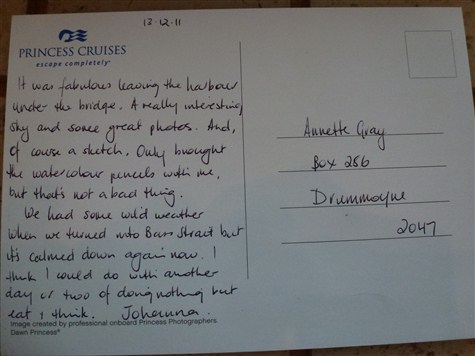 13·12·11
PRINCESS CRUISES
escape completely®
It was fabulous leaving the harbour
under the bridge. A really interesting
sky and some great photos. And,
of course a sketch. Only brought
the watercolour pencils with me,
but that's not a bad thing.
We had some wild weather
when we turned into Bass Strait but
it's calmed down again now. I
think I could do with another
day or two of doing nothing but
eat, I think. Johanna.
Image created by professional onboard Princess Photographers.
Dawn Princess®
Annette Gray
Box 286
Drummoyne
2047